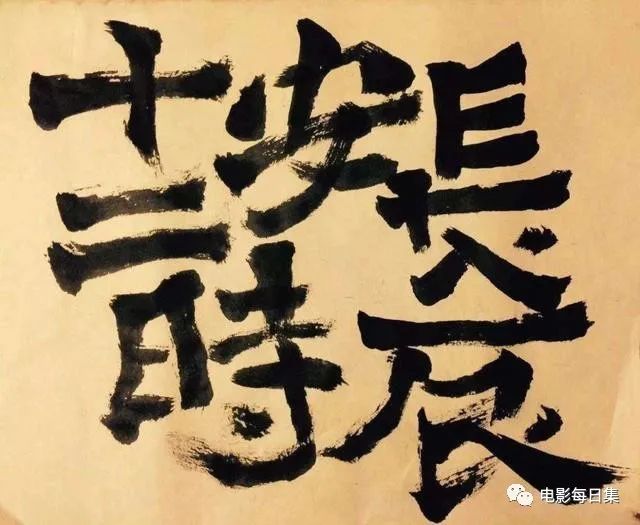 長安十二時辰
电影每日集